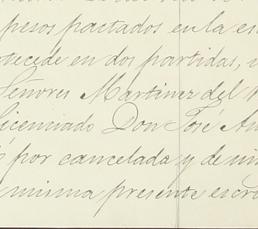 pesos pactados en la es
tecede en dos partidas,
Señores Martinez del
Licenciado Don José An
por cancelada y de nin
misma presente escri